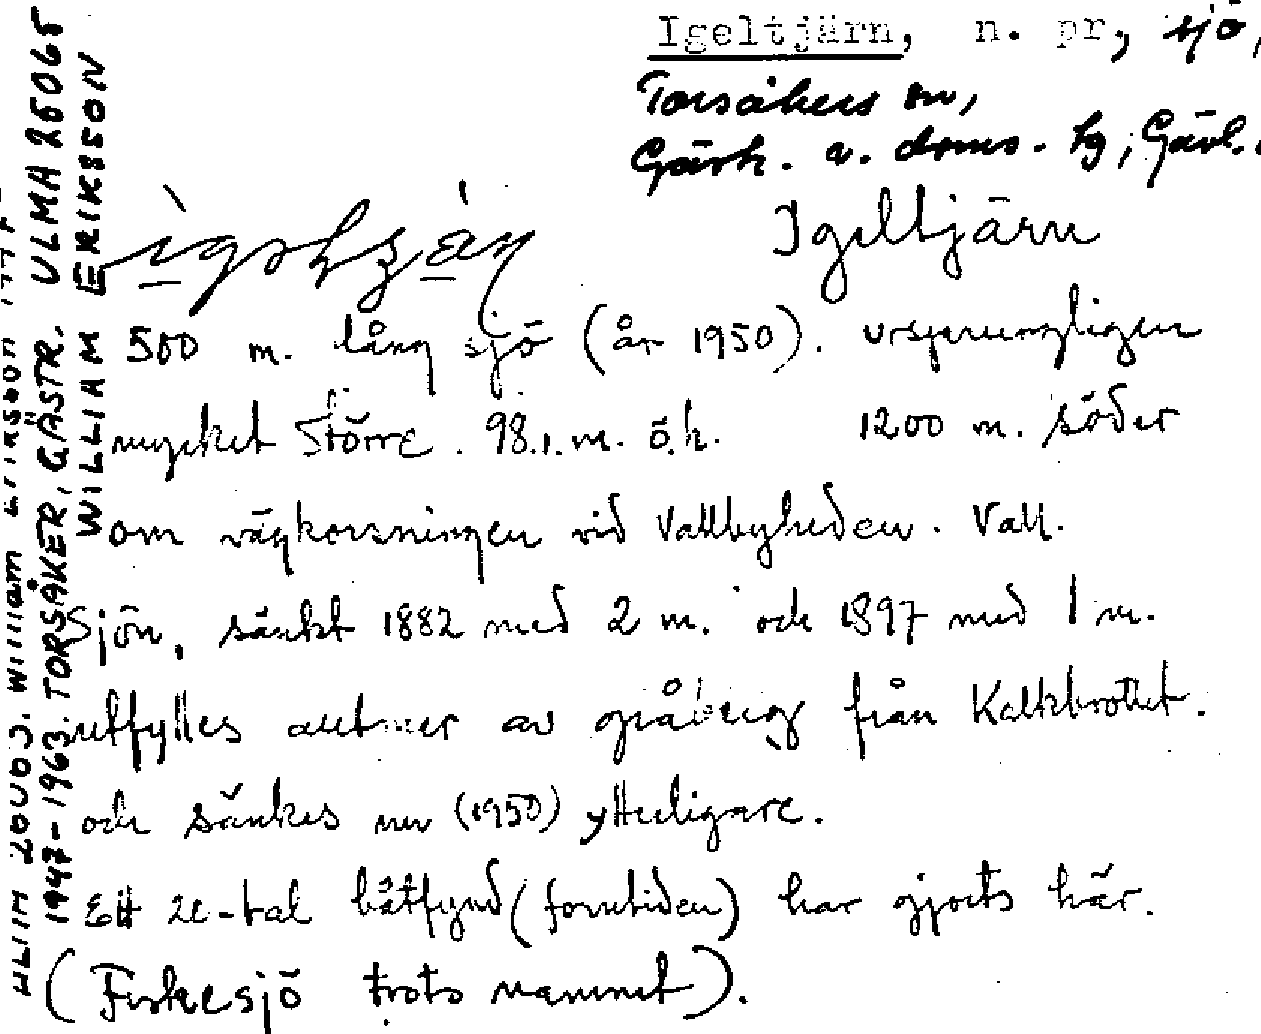 Igeltjärn, n. pr, sjö,
Torsåkers sn,
Gästr. v. doms. hg, Gävl.
Igeltjärn
500 m. lång sjö (år 1950). ursprungligen
mycket större. 98.1. m. ö.h. 1200 m. söder
om vägkorsningen vid Vallbyheden. Vall.
Sjön, sänkt 1882 med 2 m. och 1897 med 1 m.
utfylles alltmer av gråberg från Kalkbrottet.
och sänkes nu (1950) ytterligare.
Ett 20-tal båtfynd (forntiden) har gjorts här.
(Fiskesjö trots namnet).
ULMA 25065
WILLIAM ERIKSSON
1947-1963. TORSÅKER, GÄSTR.